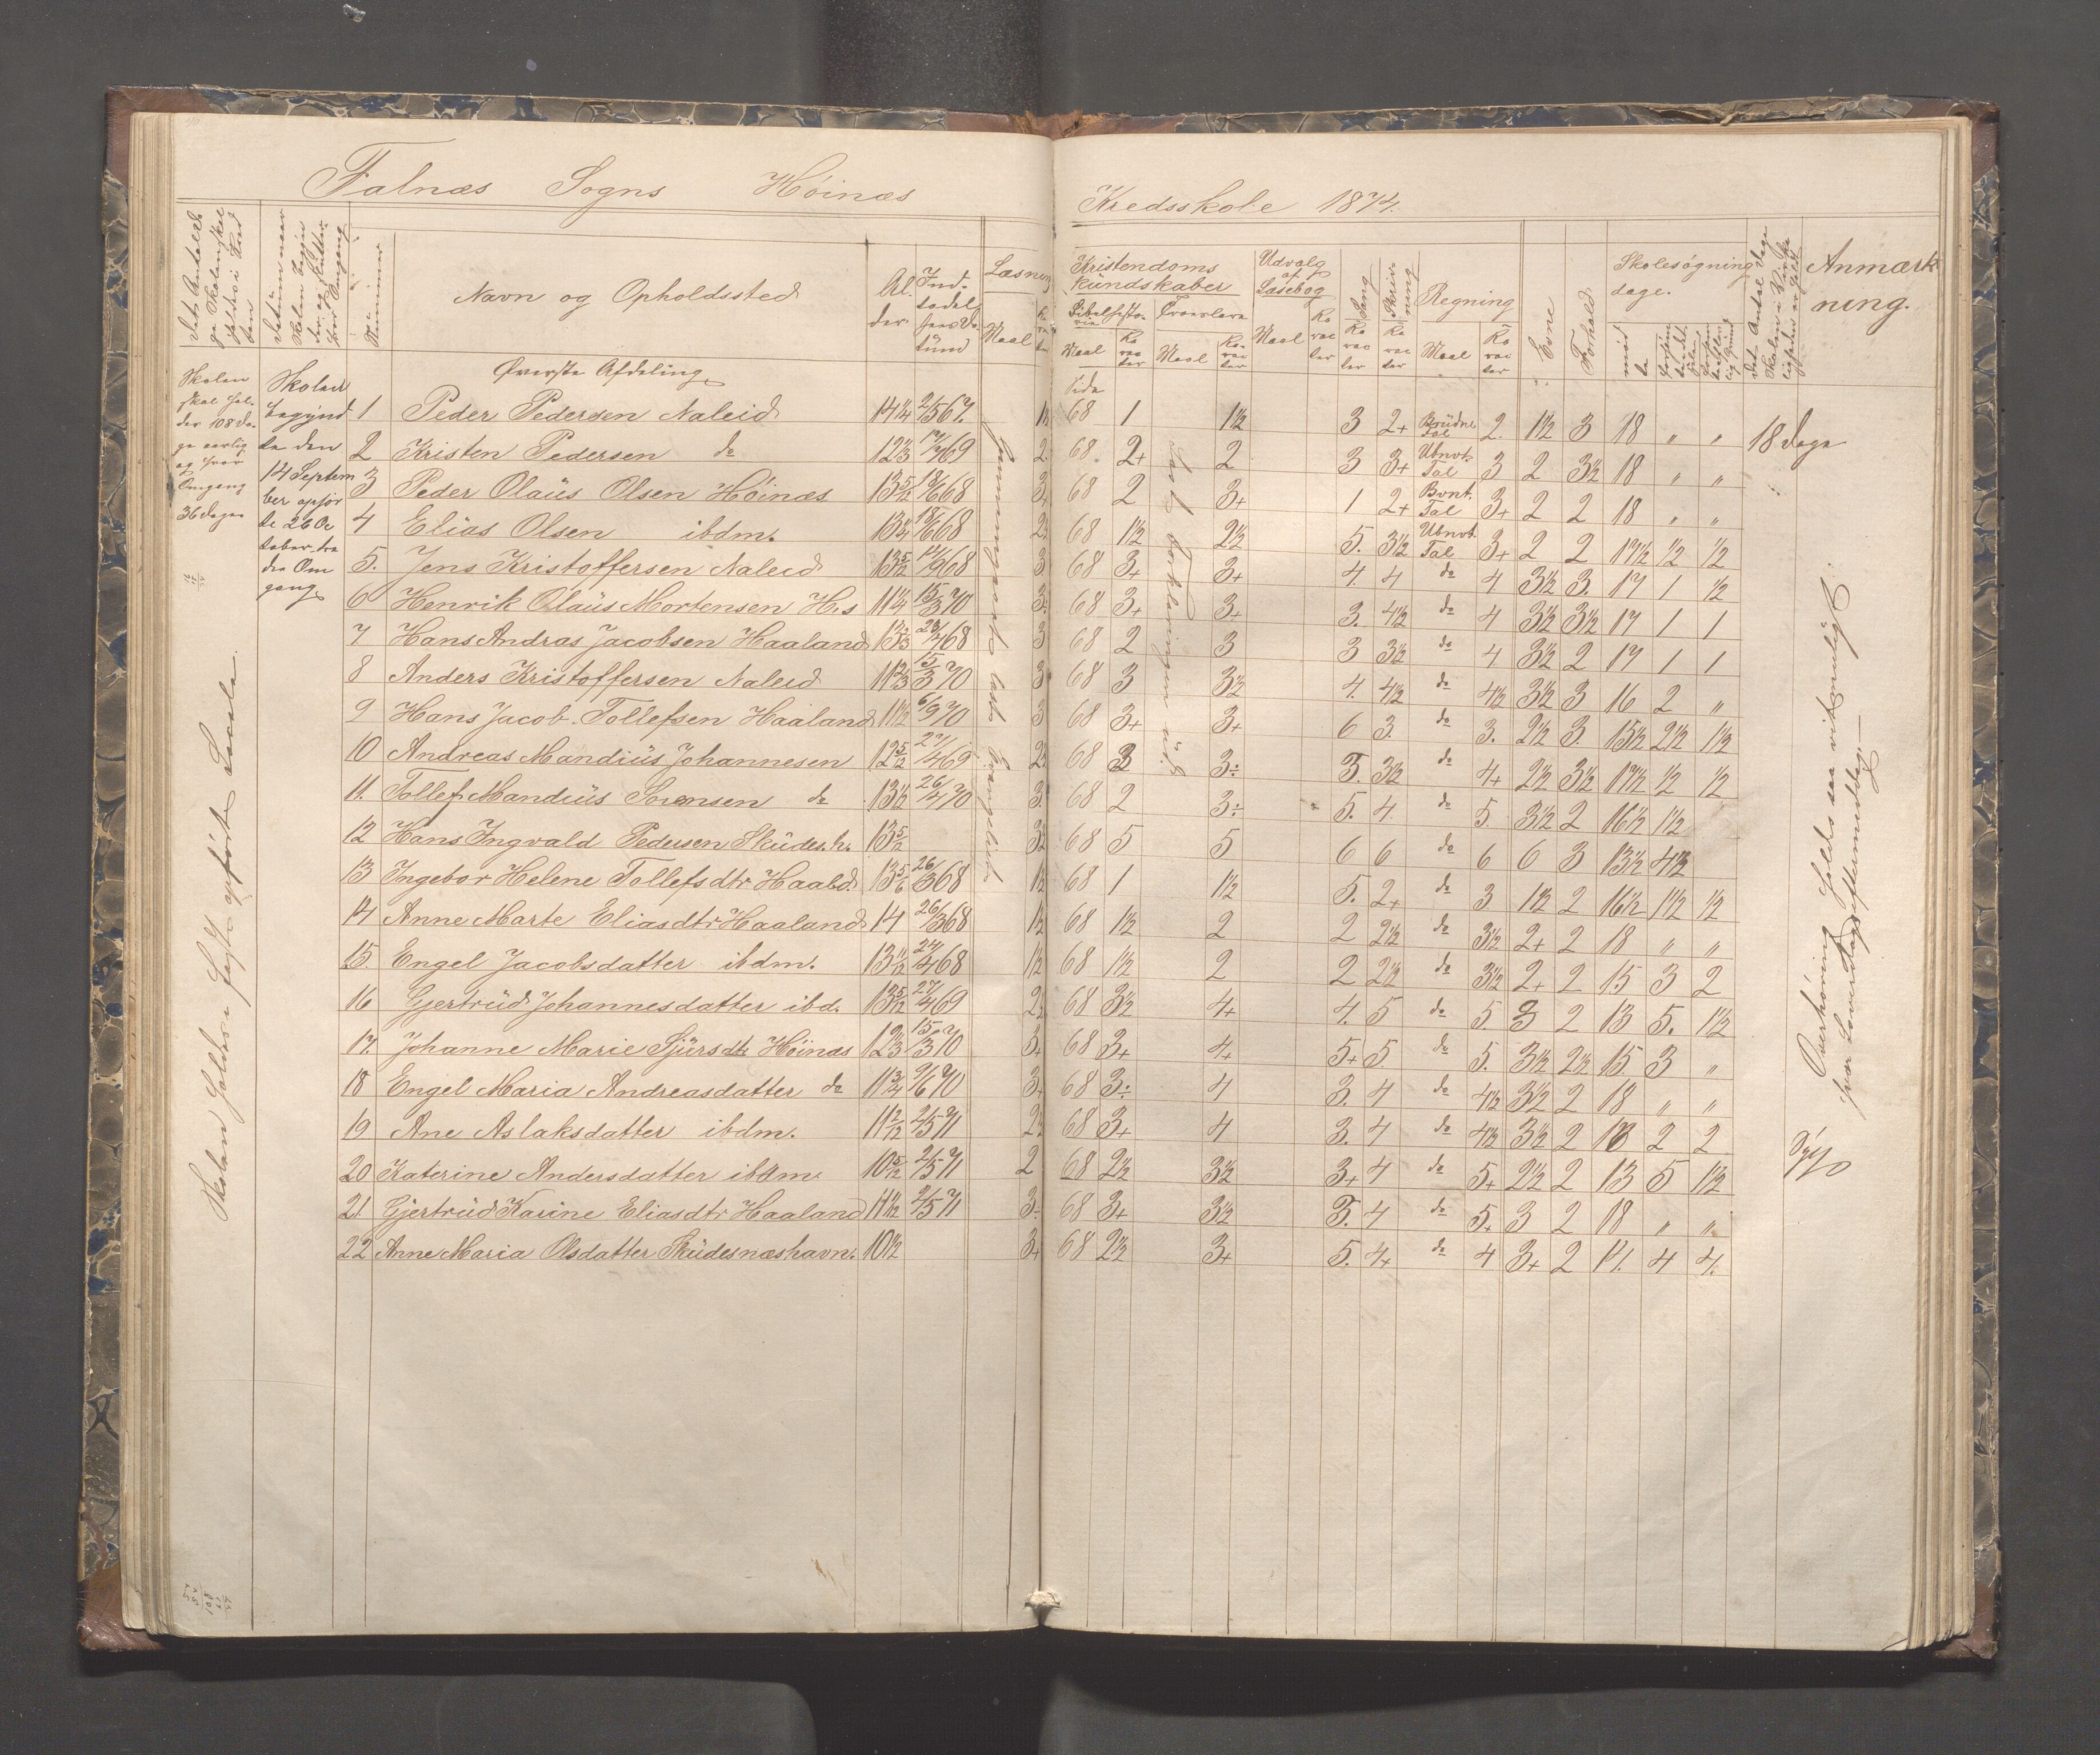 Falnæs Sogns Høinæs Kredsskole 1874.
Det Antal Dage Skolen skal holdes i Kredsen
Datum naar Skolen begynder og slutter hver Omgang
Nummer
Navn og Opholdssted
Alder.
Indtædelsens Datum
Læsning
Maal
Karakter
Kristendoms kundskaber
Bibelhistorie
Troeslære
Maal Karacter Maal Karacter
Udvalg af Læsebog
Maal Karacter
Sang
Karacter
Skrivning
Karacter
Regning
Maal Karacter
Evne
Forhold
Skolesøgning dage.
mødte
Anmærkning.
Øverste Afdeling
Side
Skolen skal holdes 108 Dage aarlig og hver Omgang 36 dage
Skolen begyndte den 14 September ophørte 26 October tredie Omgang
1 Peder Pedersen Naleid 14 1/4 2/5 67. 1½ 68 1 1½ 3 2+ Brüdne Tal 2. 1½ 3 18 " " 18 dage
2 Kristen Pedersen do 12 1/3 69 2 68. 2+ 2 3 3+ Ubnvt Tal 3 2 3½ 18 " "
3 Peder Olaüs Olsen Höinæs 13 5/12 68 3 68 2 3+ 1 2+ Bvnt. Tal 3+ 2 2 18 " "
4 Elias Olsen ibdm. 13 1/4 68 2½ 68 1½ 2½ 5. 3½ Ubnvt Tal 3+ 2 2 17½ ½ ½
5. Jens Kristoffersen Naleid 13 5/12 14/9 68 3 68 3+ 3+ 4. 4 do 4 3½ 3. 17 1 ½
6 Henrik Olaüs Mortensen H.s 11 1/4 15/3 70 3. 68 3+ 3+ 3. 4½ do 4 3½ 3½ 17 1 1
7 Hans Andras Jacobsen Haaland 13 2/3 28/4 68 3 68 2 3 3 3½ do 4 3½ 2 17 1 1
8 Anders Kristoffersen Naleid 11 2/3 15/3 70 3 68 3 3½ 4. 4½ do 4½ 3½ 3 16 2 "
9 Hans Jacob Tollefsen Haaland 11½ 6/9 70 3 68 3+ 3+ 6 3. do 3. 2½ 3. 15½ 2½ 1½
10 Andreas Mandiüs Johannesen 12 5/12 27/4 69 2½ 68 3 3÷ 3. 3½ do 4+ 2½ 3½ 17½ ½ ½
11. Tollef Mandiüs Sorensen do 13½ 26/4 70 3. 68 2 3÷ 5. 4. do 5. 3½ 2 16½ 1½
12 Hans Ingvald Pedersen Sküdes.h. 13 5/12 3½ 68 5 5 6 6 do 6 6 3 13½ 4½
13 Ingebor Helene Tollefsdtr Haald 13 5/6 26/3 68 1½ 68 1 1½ 5. 2+ do 3 1½ 2 16½ 1½ ½
14 Anne Marte Eliasdtr Haaland 14 26/3 68 1½ 68 1½ 2 2 2½ do 3½ 2+ 2 18 " "
15. Engel Jacobsdatter ibdm. 13 1/12 24/4 68 1½ 68 1½ 2 2 2½ do 3½ 2+ 2 15 3 2
16 Gjertrüd Johannesdatter ibd. 13 5/12 27/4 69 2½ 68 3½ 4+ 4. 5 do 5. 3 2 13 5. 1½
17. Johanne Marie Sjürsdtr Höinæs 12 1/3 15/3 70 3+ 68 3+ 4+ 5+ 5. do 5. 3½ 2½ 15 3 "
18 Engel Maria Andreasdatter do 11 3/4 9/6 70 3+ 68 3÷ 4 3. 4 do 4½ 3½ 2 18 " "
19 Ane Aslaksdatter ibdm. 11 2/12 2/5 71 2½ 68 3+ 4 3. 4 do 4½ 3½ 2 13 2 2
20 Katerine Andersdatter ibdm. 10 5/12 2/5 71 2 68 2½ 3½ 3+ 4 do 5+ 2½ 2 13 5 1½
21 Gjertrüd Karine Eliasdtr Haaland 11 1/12 2/5 71 3. 68 3+ 3½ 3. 4 do 5+ 3 2 18 " "
22 Anne Maria Olsdatter Sküdesnæshavn. 10½ 3+ 68 2½ 3+ 5. 4+ do 4 3+ 2 11. 4 4.
Skolen holdes i fast opførte Locale.
Gjennemgaaet
læst Evangelierne
læst Forklaringen ud.
Overhøring holdes saa vidt muligt
hver Løverdags eftermiddag